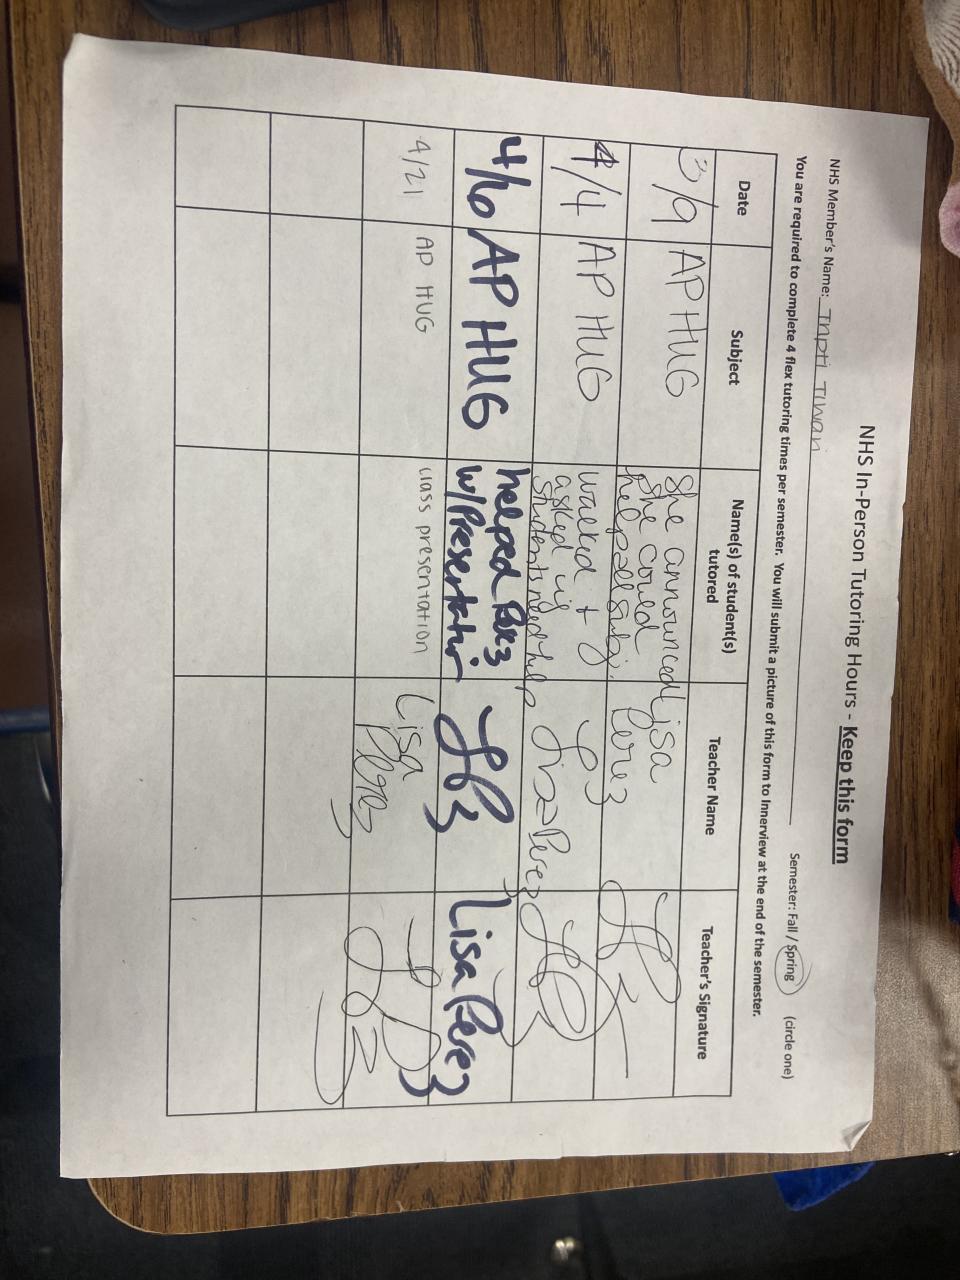 NHS In-Person Tutoring Hours - Keep this form
NHS Member's Name: Tripti Tiwari Semester: Fall / Spring (circle one)
You are required to complete 4 flex tutoring times per semester. You will submit a picture of this form to Innerview at the end of the semester.
Date Subject Name(s) of student(s) tutored Teacher Name Teacher's Signature
3/9 AP HUG She announced Lisa
she could Perez
help all subj.
4/4 AP HUG walked + Lisa Perez
asked if
students need help
4/6 AP HUG helped Lisa Perez
w/Presentation
4/21 AP HUG class presentation Lisa
Perez